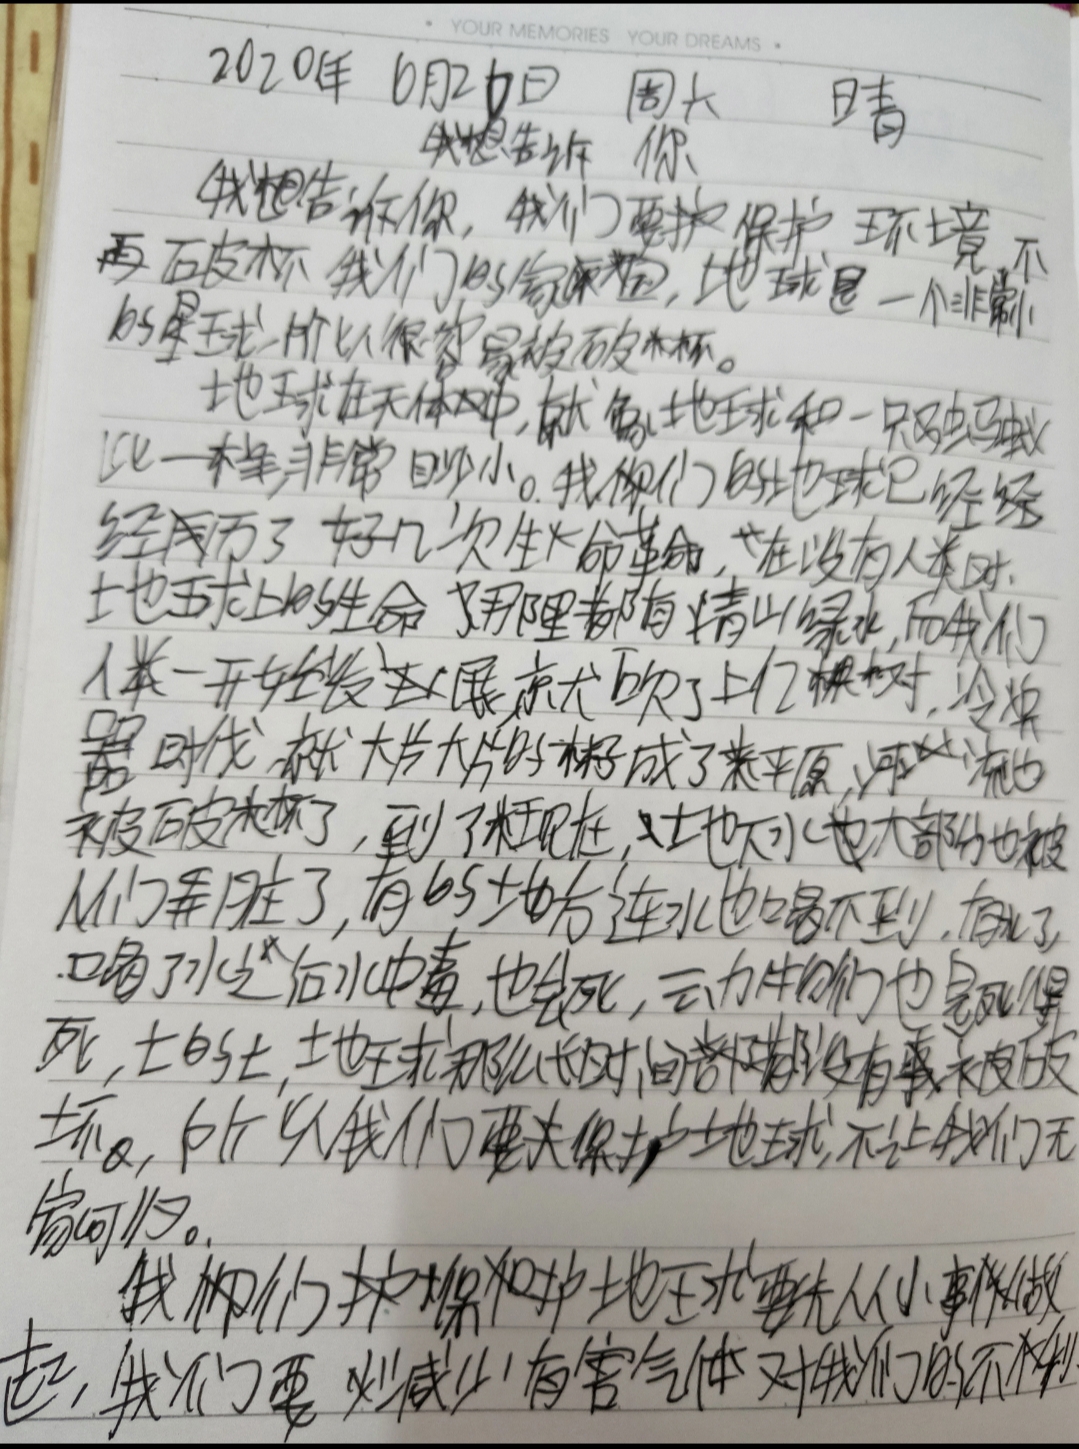 YOUR MEMORIES YOUR DREAMS
2020年 6月26日 周六 晴
我想告诉 你
我想告诉你，我们要护保护环境，不
再破坏我们的家园，地球是一个非常小
的星球，所以很容易被破坏。
地球在天体中，就象地球和一只蚂蚁
比一样非常渺小。我们的地球已经经
经历了好几次生命革命，在没有人类时，
地球上的生命 那里都有青山绿水，而我们
人类一开始发展，就砍了上亿棵树，冷兵
器时代，就大片大片的林子成了平原，河流也
被破坏了，到了现在，地下水也大部分也被
人们弄脏了，有的地方连水也喝不到，
喝了水之后水中毒，也会死，动物们也是死得
死，地球那么长时间都没有被破
坏，所以我们要去保护地球，不让我们无
家可归。
我们护保护地球要先从小事件做
起，我们要减少有害气体对我们的不利